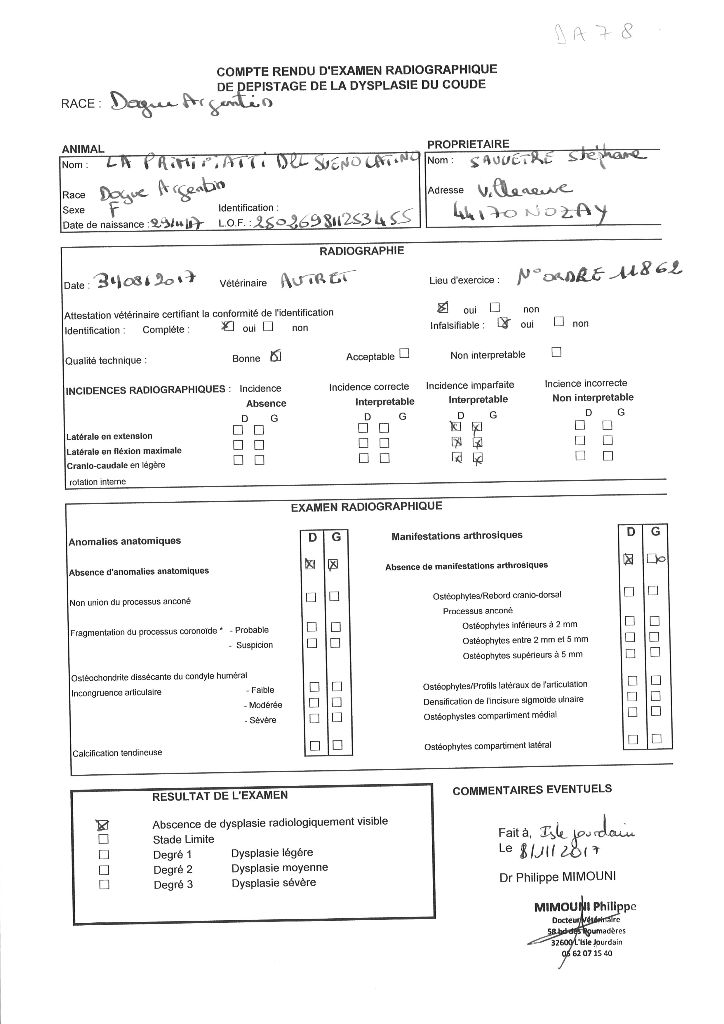 DA78
COMPTE RENDU D'EXAMEN RADIOGRAPHIQUE
DE DEPISTAGE DE LA DYSPLASIE DU COUDE
RACE : Dogue Argentin
ANIMAL
Nom : LA PRIMI PIATTI DEL SUENO LATINO
Race Dogue Argentin
Sexe F Identification :
Date de naissance : L.O.F. : 250269811253455
PROPRIETAIRE
Nom : SAUVETRE Stéphane
Adresse Villeneuve
44170 NOZAY
RADIOGRAPHIE
Date : Vétérinaire AUTRET Lieu d'exercice : N° ORDRE 11862
Attestation vétérinaire certifiant la conformité de l'identification oui non
Identification : Complète : oui non Infalsifiable : oui non
Qualité technique : Bonne Acceptable Non interpretable
INCIDENCES RADIOGRAPHIQUES : Incidence Incidence correcte Incidence imparfaite Incience incorrecte
Absence Interpretable Interpretable Non interpretable
D G D G D G D G
Latérale en extension
Latérale en fléxion maximale
Cranio-caudale en légère
rotation interne
EXAMEN RADIOGRAPHIQUE
Anomalies anatomiques D G
Absence d'anomalies anatomiques
Non union du processus anconé
Fragmentation du processus coronoïde * - Probable
- Suspicion
Ostéochondrite dissécante du condyle huméral
Incongruence articulaire - Faible
- Modérée
- Sévère
Calcification tendineuse
Manifestations arthrosiques D G
Absence de manifestations arthrosiques
Ostéophytes/Rebord cranio-dorsal
Processus anconé
Ostéophytes inférieurs à 2 mm
Ostéophytes entre 2 mm et 5 mm
Ostéophytes supérieurs à 5 mm
Ostéophytes/Profils latéraux de l'articulation
Densification de l'incisure sigmoïde ulnaire
Ostéophystes compartiment médial
Ostéophytes compartiment latéral
RESULTAT DE L'EXAMEN
Abscence de dysplasie radiologiquement visible
Stade Limite
Degré 1 Dysplasie légère
Degré 2 Dysplasie moyenne
Degré 3 Dysplasie sévère
COMMENTAIRES EVENTUELS
Fait à, Isle jourdain
Le 8/11/2017
Dr Philippe MIMOUNI
MIMOUNI Philippe
Docteur Vétérinaire
58 bd des Poumadères
32600 L'Isle Jourdain
05 62 07 15 40